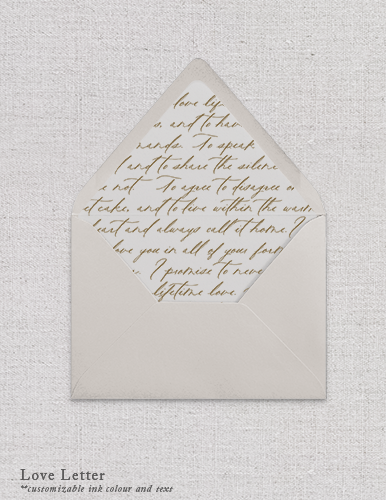 love
and to
hands. To speak
and to share the silence
not To agree to disagree
cake, and to live within the warm
heart and always call it home. I
love you in all of your form
I promise to never
lifetime love.
Love Letter
**customizable ink colour and text